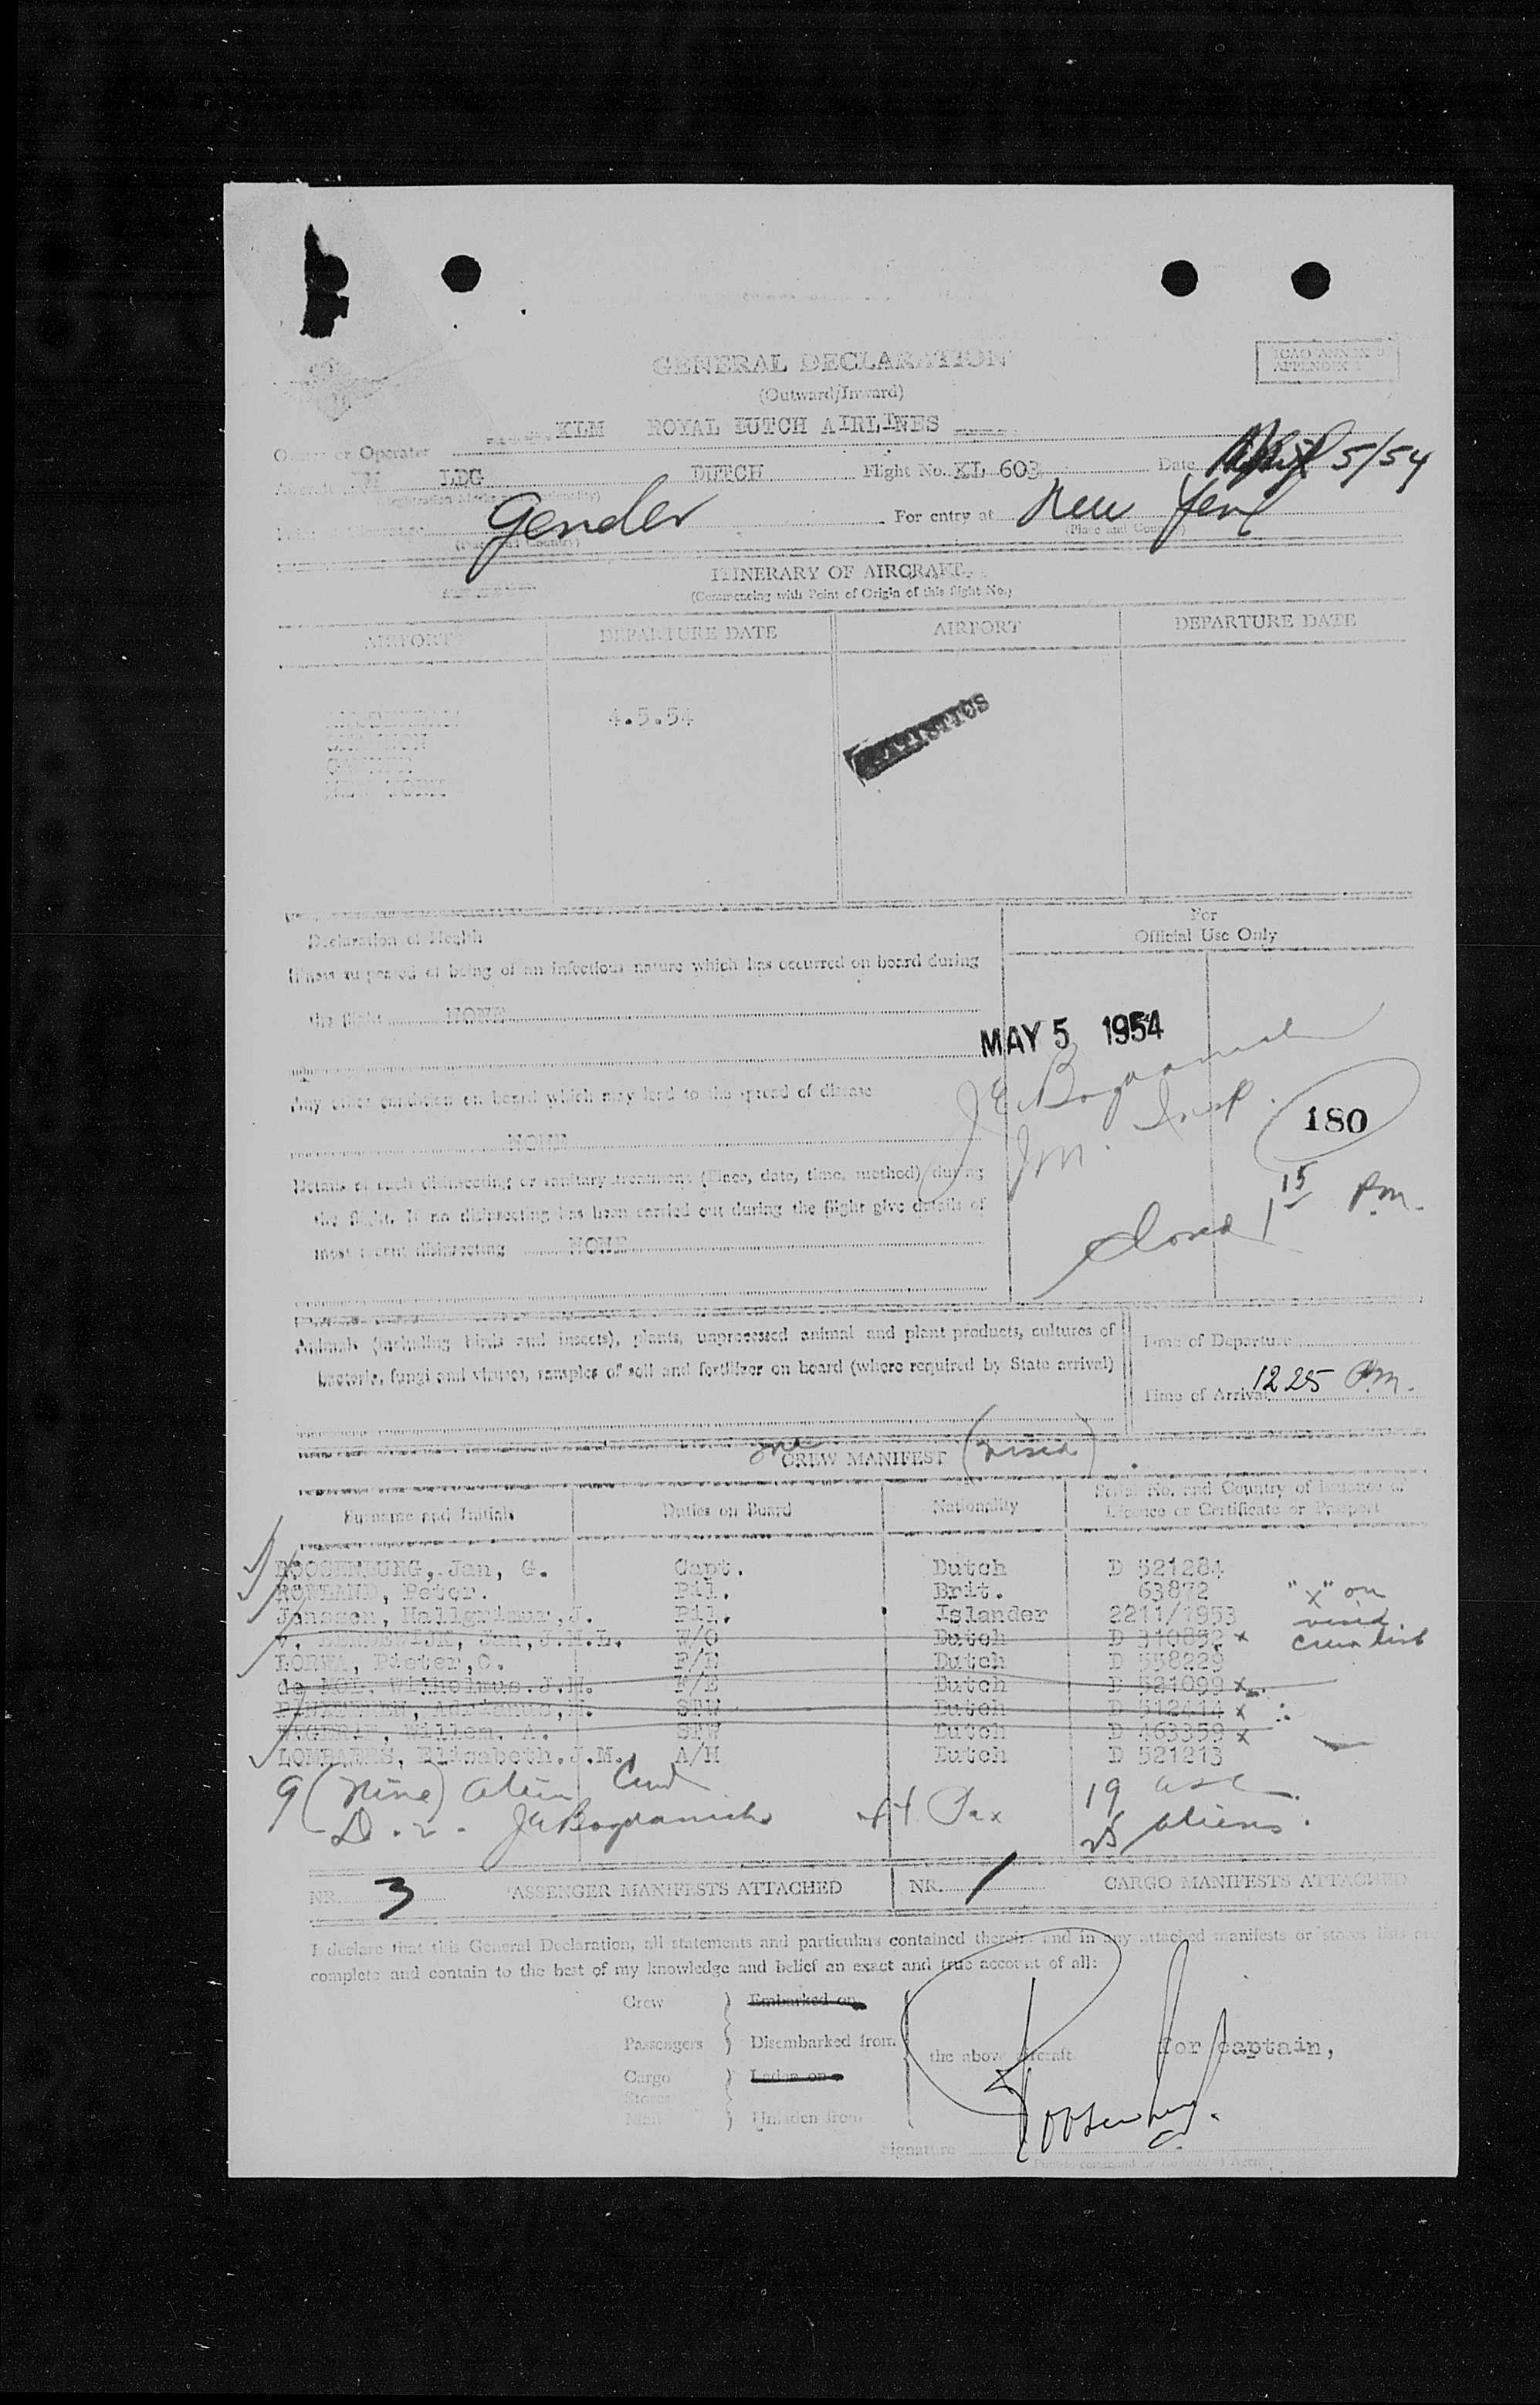 GENERAL DECLARATION
(Outward/Inward)
ICAO ANNEX 9
APPENDIX 1
Owner or Operator KLM ROYAL DUTCH AIRLINES
Aircraft PH LDG DUTCH Flight No. KL 603 Date 5/54
(Registration Marks and Nationality)
Gender For entry at New York
(Place and Country) (Place and Country)
ITINERARY OF AIRCRAFT
(Commencing with Point of Origin of this flight No.)
AIRPORT DEPARTURE DATE AIRPORT DEPARTURE DATE
AMSTERDAM 4.5.54
SHANNON
GANDER
NEW YORK
STATISTICS
For
Official Use Only
Declaration of Health
Illness suspected of being of an infectious nature which has occurred on board during
the flight NONE
MAY 5 1954
Any other condition on board which may lead to the spread of disease
NONE
J E Bogdanich
Im. Insp.
180
Details of each disinsecting or sanitary treatment (Place, date, time, method) during
the flight. If no disinsecting has been carried out during the flight give details of
most recent disinsecting NONE
Closed 1 15 P.m.
Animals (including birds and insects), plants, unprocessed animal and plant products, cultures of
bacteria, fungi and viruses, samples of soil and fertilizer on board (where required by State arrival)
Time of Departure
Time of Arrival 12 25 P.m.
CREW MANIFEST (visied)
Surname and Initials Duties on Board Nationality Serial No. and Country of Issuance of
Licence or Certificate or Passport
ROOSENBURG, Jan, G. Capt. Dutch D 521284
ROWLAND, Peter. Pil. Brit. 63872 "x" on
Jonsson, Hallgrimur, J. Pil. Islander 2211/1953 visied
v. BENNEWIJK, Jan, J.H.L. W/O Dutch D 310852 x crew list
LORWA, Pieter, C. F/E Dutch D 558229
de KOL. Wilhelmus. J.H. F/E Dutch D 521099 x
Adrianus, H. STW Dutch D 512414 x
WEGERIF, Willem. A. STW Dutch D 463359 x
LOMBAERS, Elisabeth. J.M. A/H Dutch D 521213
9 (nine) alien Crew
D. 2. JE Bogdanich 44 Pax 19 USC
25 Aliens.
NR. 3 PASSENGER MANIFESTS ATTACHED NR. 1 CARGO MANIFESTS ATTACHED
I declare that this General Declaration, all statements and particulars contained therein, and in any attached manifests or stores lists are
complete and contain to the best of my knowledge and belief an exact and true account of all:
Crew Embarked on
Passengers Disembarked from the above aircraft for captain,
Cargo Laden on
Stores
Mail Unladen from
Roosenburg.
Signature